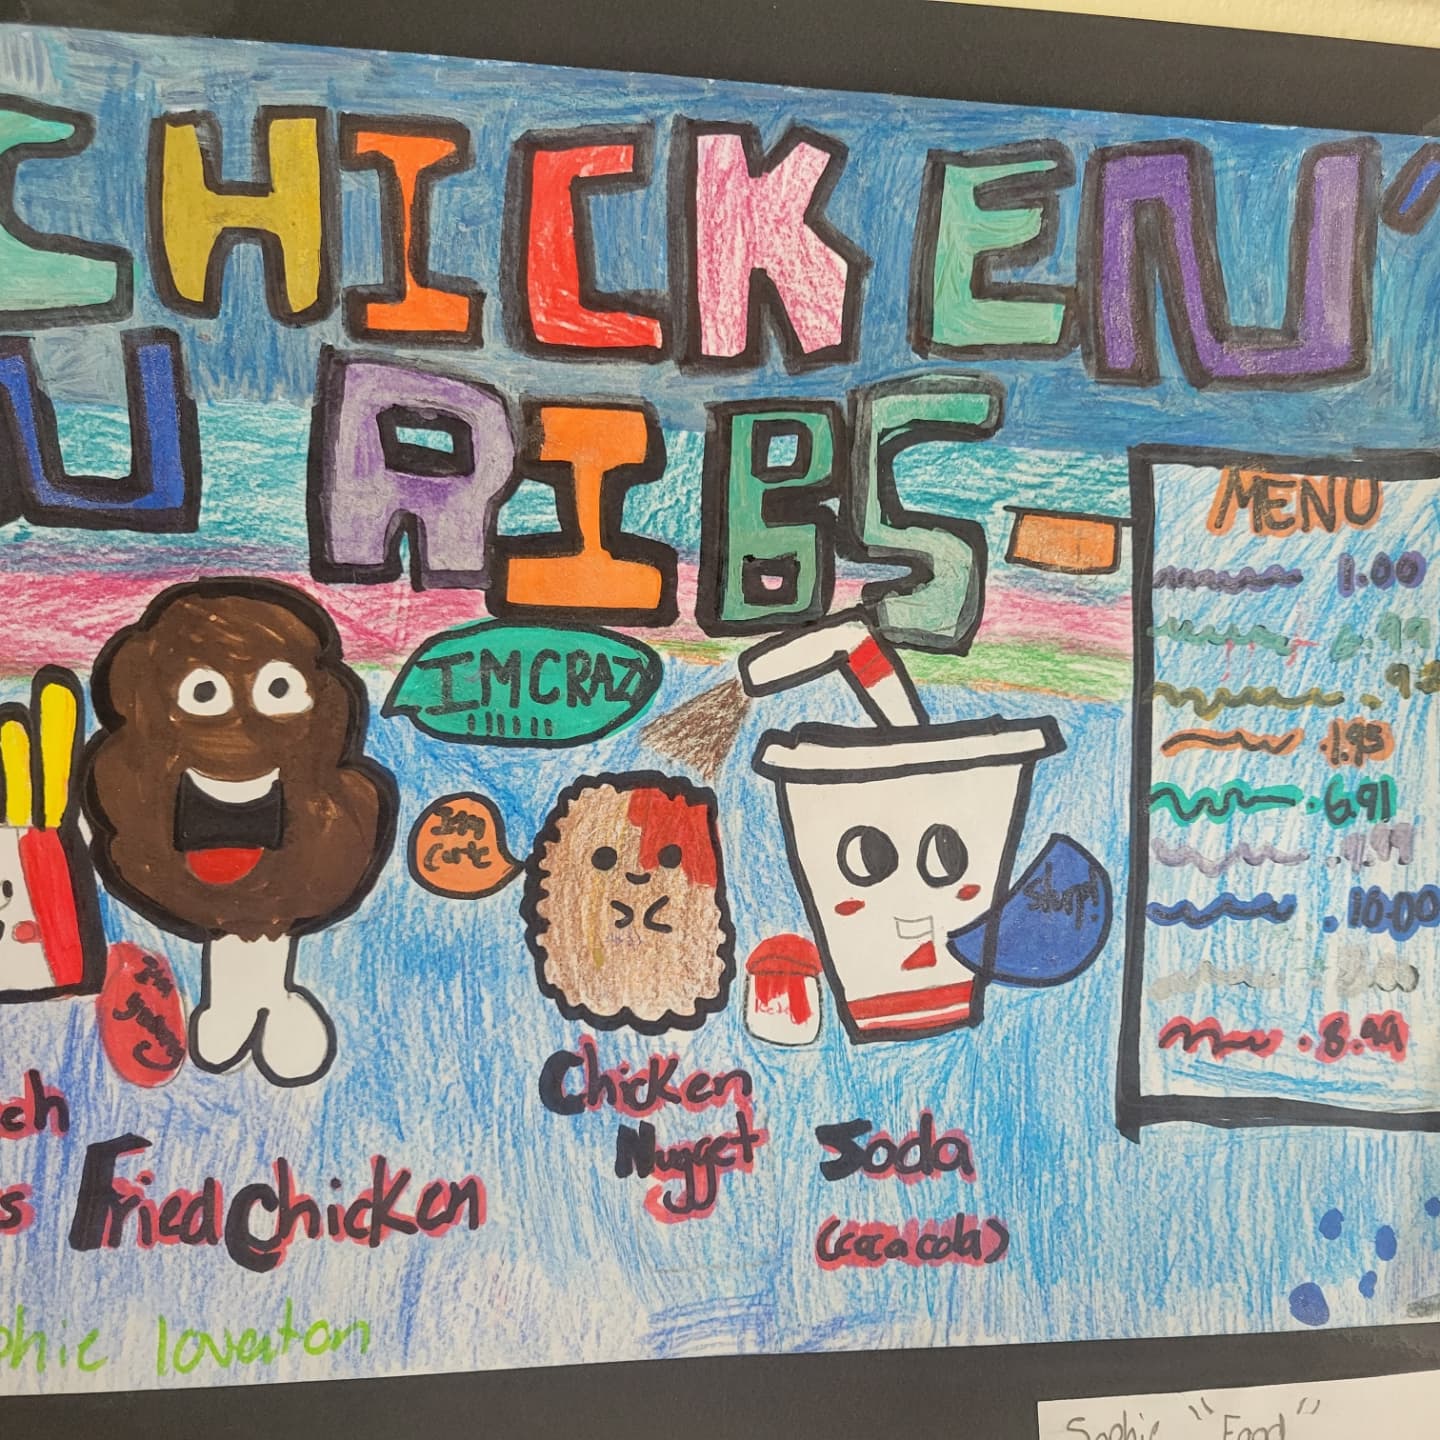 CHICKEN'
U RIBS
MENU
1.00
6.99
1.95
6.91
.9.99
.10.00
.8.99
IM CRAZY
!!!!!!
Im
Cute
Slurp!
Chicken
Nugget
Soda
(coca cola)
ch
s
Fried Chicken
phie loveaton
Sophie "Food"